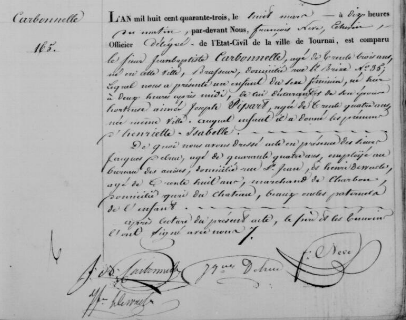 Carbonnelle
165.
L'AN mil huit cent quarante-trois, le huit mars à dix heures
du matin, par-devant Nous, François
Officier délégué de l'Etat-Civil de la ville de Tournai, est comparu
le sieur Jean-baptiste Carbonnelle, agé de trente trois ans,
né en cette ville, domicilié rue
Lequel nous a présenté un enfant du sexe féminin, né hier
à deux heures après midi, de lui déclarant et de son épouse
hortense aimée Josephe Depars, agée de trente quatre ans,
née même ville auquel enfant il a donné les prénoms
d'henriette Isabelle
De quoi nous avons dressé acte en présence des sieurs
Jacques Delme, agé de quarante quatre ans, employé au
bureau des domicilié rue St Jean, et henri
agé de trente huit ans, marchand de Charbon,
domicilié quai du Chateau, beaux oncles paternels
de l'enfant
Après lecture du présent acte, le père et les témoins
l'ont signé avec nous
Carbonnelle